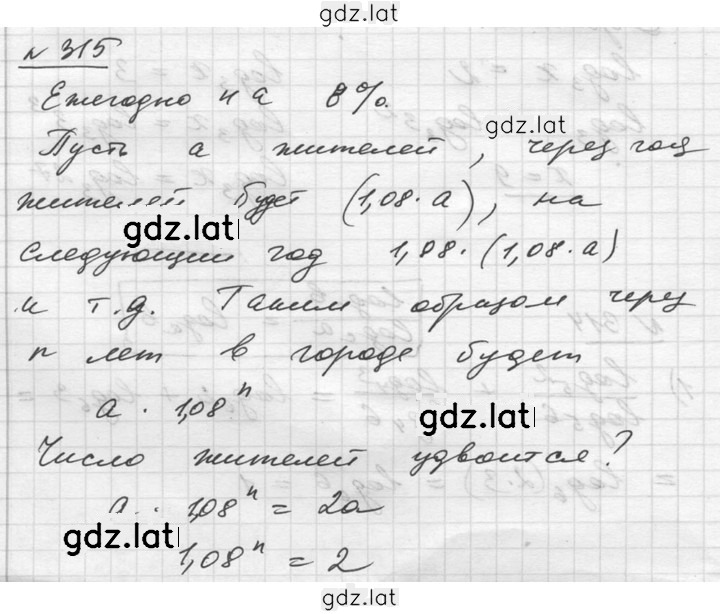 gdz.lat
№ 315
Ежегодно на 8%.
gdz.lat
Пусть a жителей, через год
жителей будет (1,08·a), на
gdz.lat
следующий год 1,08·(1,08·a)
и т.д. Таким образом через
n лет в городе будет
a · 1,08ⁿ
gdz.lat
Число жителей удвоится?
a · 1,08ⁿ = 2a
gdz.lat
1,08ⁿ = 2
gdz.lat